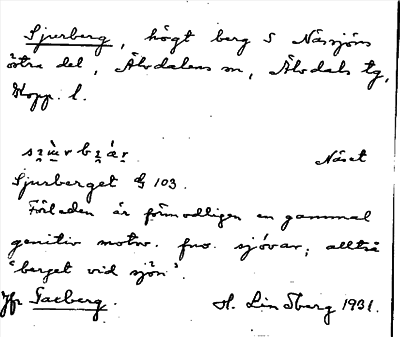 Sjurberg, högt berg S Näsjöns
östra del, Älvdalens sn, Älvdals tg,
Kopp. l.
Näset
Sjurberget G 103.
Förleden är förmodligen en gammal
genitiv motsv. fno. sjóvar; alltså
"berget vid sjön".
Jfr Saeberg. H. Lindberg 1931.